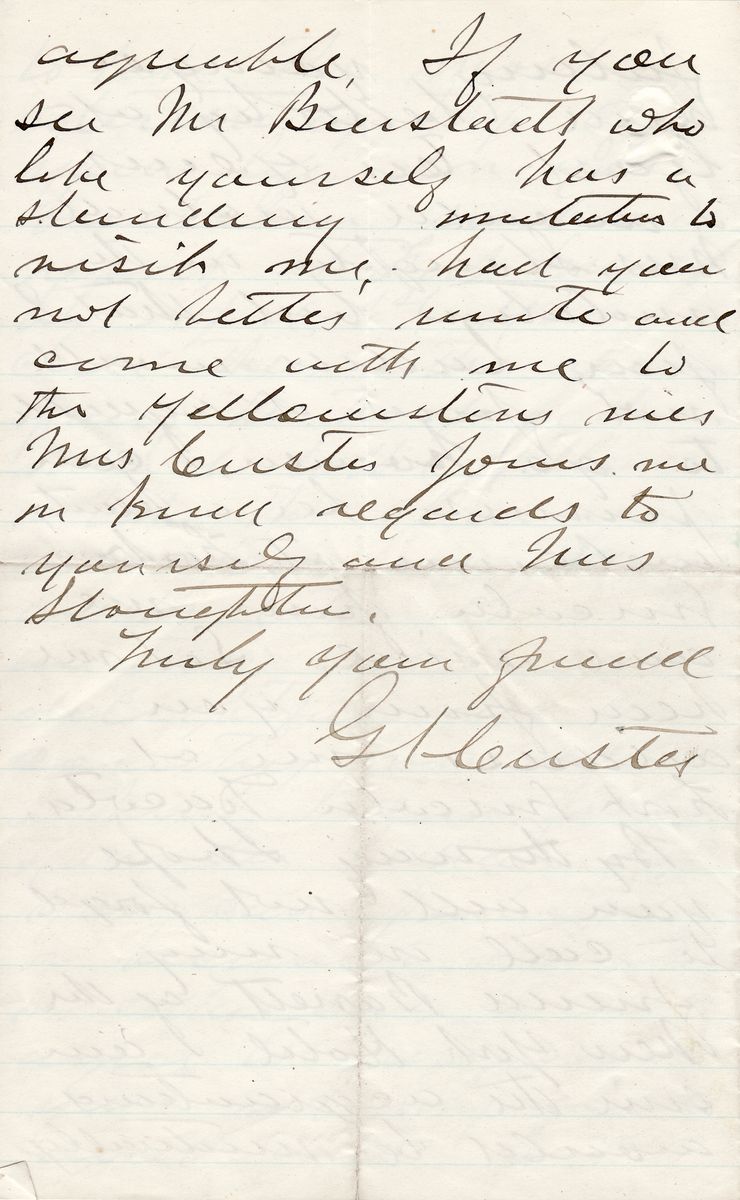 agreeable, If you
see Mr Bierstadt who
like yourself has a
standing invitation to
visit me, had you
not better unite and
come with me to
the Yellowstone river
Mrs Custer joins me
in kind regards to
yourself and Mrs
Stoughton.
Truly your friend
G A Custer